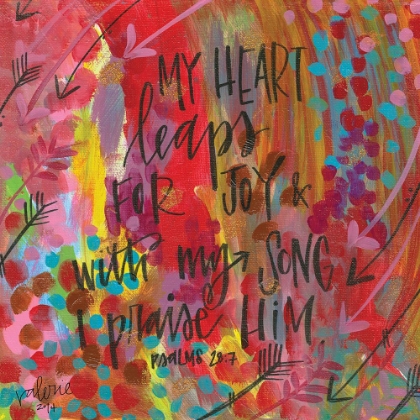 MY HEART
leaps
FOR JOY &
with my SONG
i praise HIM
PSALMS 28:7